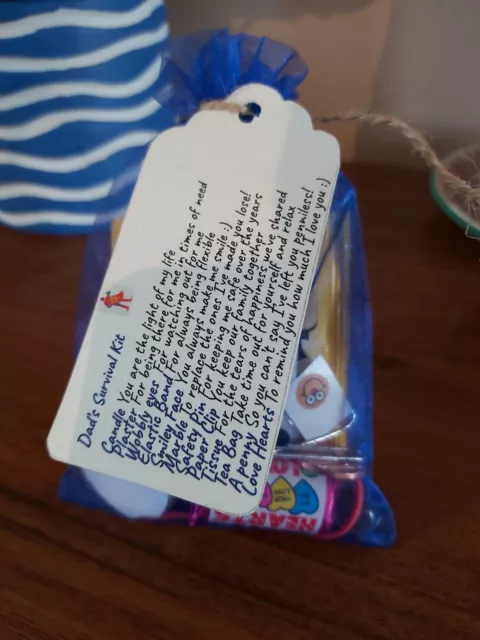 Dad's Survival Kit
Candle You are the light of my life
Plaster For being there for me in times of need
Wobbly eyes For watching out for me
Elastic Band For always being flexible
Smiley Face You always make me smile :)
Marble To replace the ones I've made you lose!
Safety Pin For keeping me safe over the years
Paper Clip You keep our family together
Tissue For the tears of happiness we've shared
Tea Bag Take time out for yourself and relax
A penny So you can't say I've left you penniless!
Love Hearts To remind you how much I love you :)
HEARTS